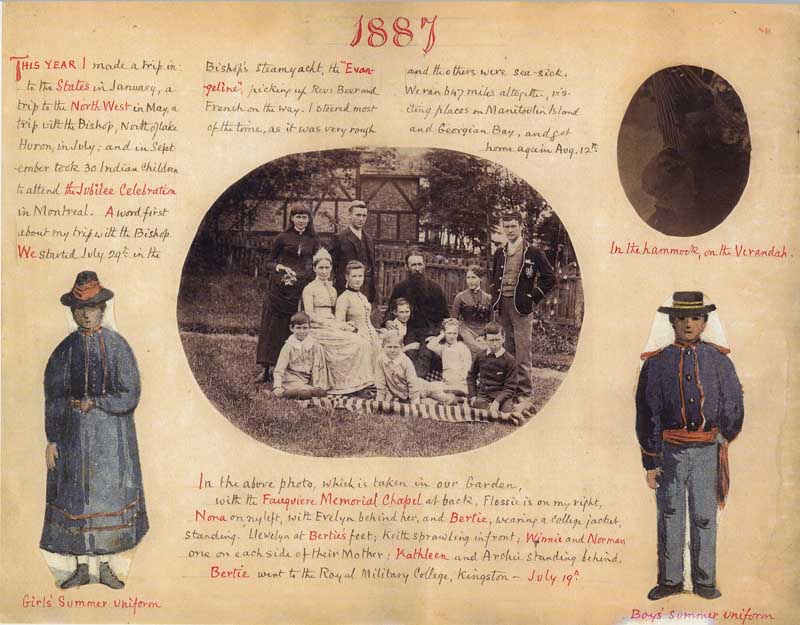 1887
THIS YEAR I made a trip in-
to the States in January, a
trip to the North West in May, a
trip with the Bishop, North of Lake
Huron, in July; and in Sept
-ember took 30 Indian Children
to attend the Jubilee Celebration
in Montreal. A word first
about my trip with the Bishop.
We started July 29th in the
Bishop's Steamyacht, the "Evan-
geline", picking up Revs Beer and
French on the way. I steered most
of the time, as it was very rough
and the others were sea-sick.
We ran 647 miles altogether, vis-
iting places on Manitoulin Island
and Georgian Bay, and got
home again Aug. 12th.
In the hammock, on the Verandah.
In the above photo, which is taken in our Garden,
with the Fauquiere Memorial Chapel at back, Flossie is on my right,
Nora on my left, with Evelyn behind her, and Bertie, wearing a College jacket,
standing. Llewelyn at Bertie's feet; Keith sprawling in front; Winnie and Norman
one on each side of their Mother; Kathleen and Archie standing behind.
Bertie went to the Royal Military College, Kingston – July 19th
Girls' Summer Uniform
Boys' Summer Uniform